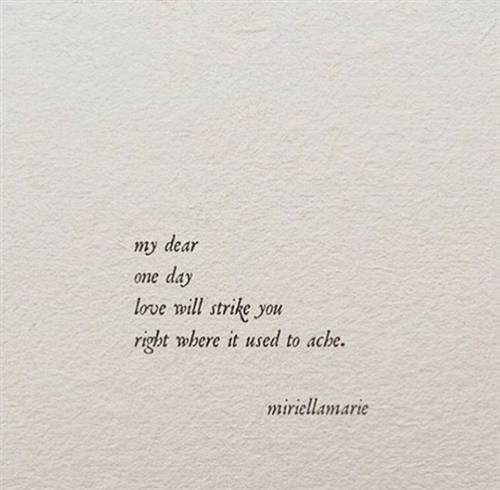 my dear
one day
love will strike you
right where it used to ache.
miriellamarie